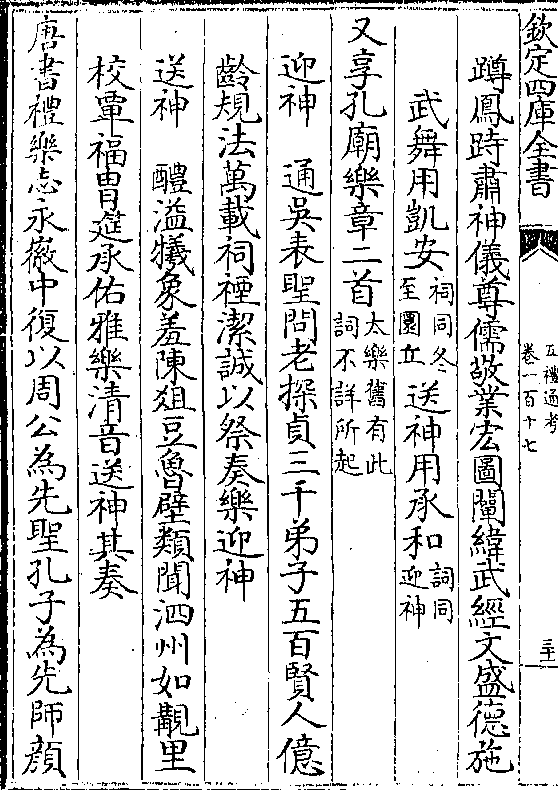 欽定四庫全書
五禮通考
卷一百十七
三十
蹲鳳跱肅神儀尊儒敬業宏圖闡緯武經文盛德施
武舞用凱安祠同冬至圜丘送神用承和詞同迎神
又享孔廟樂章二首太樂舊有此詞不詳所起
迎神　通吳表聖問老探貞三千弟子五百賢人億
齡規法萬載祠禋潔誠以祭奏樂迎神
送神　醴溢犧象羞陳俎豆魯壁類聞泗州如覯里
校覃福胄筵承佑雅樂清音送神其奏
唐書禮樂志永徽中復以周公為先聖孔子為先師顔